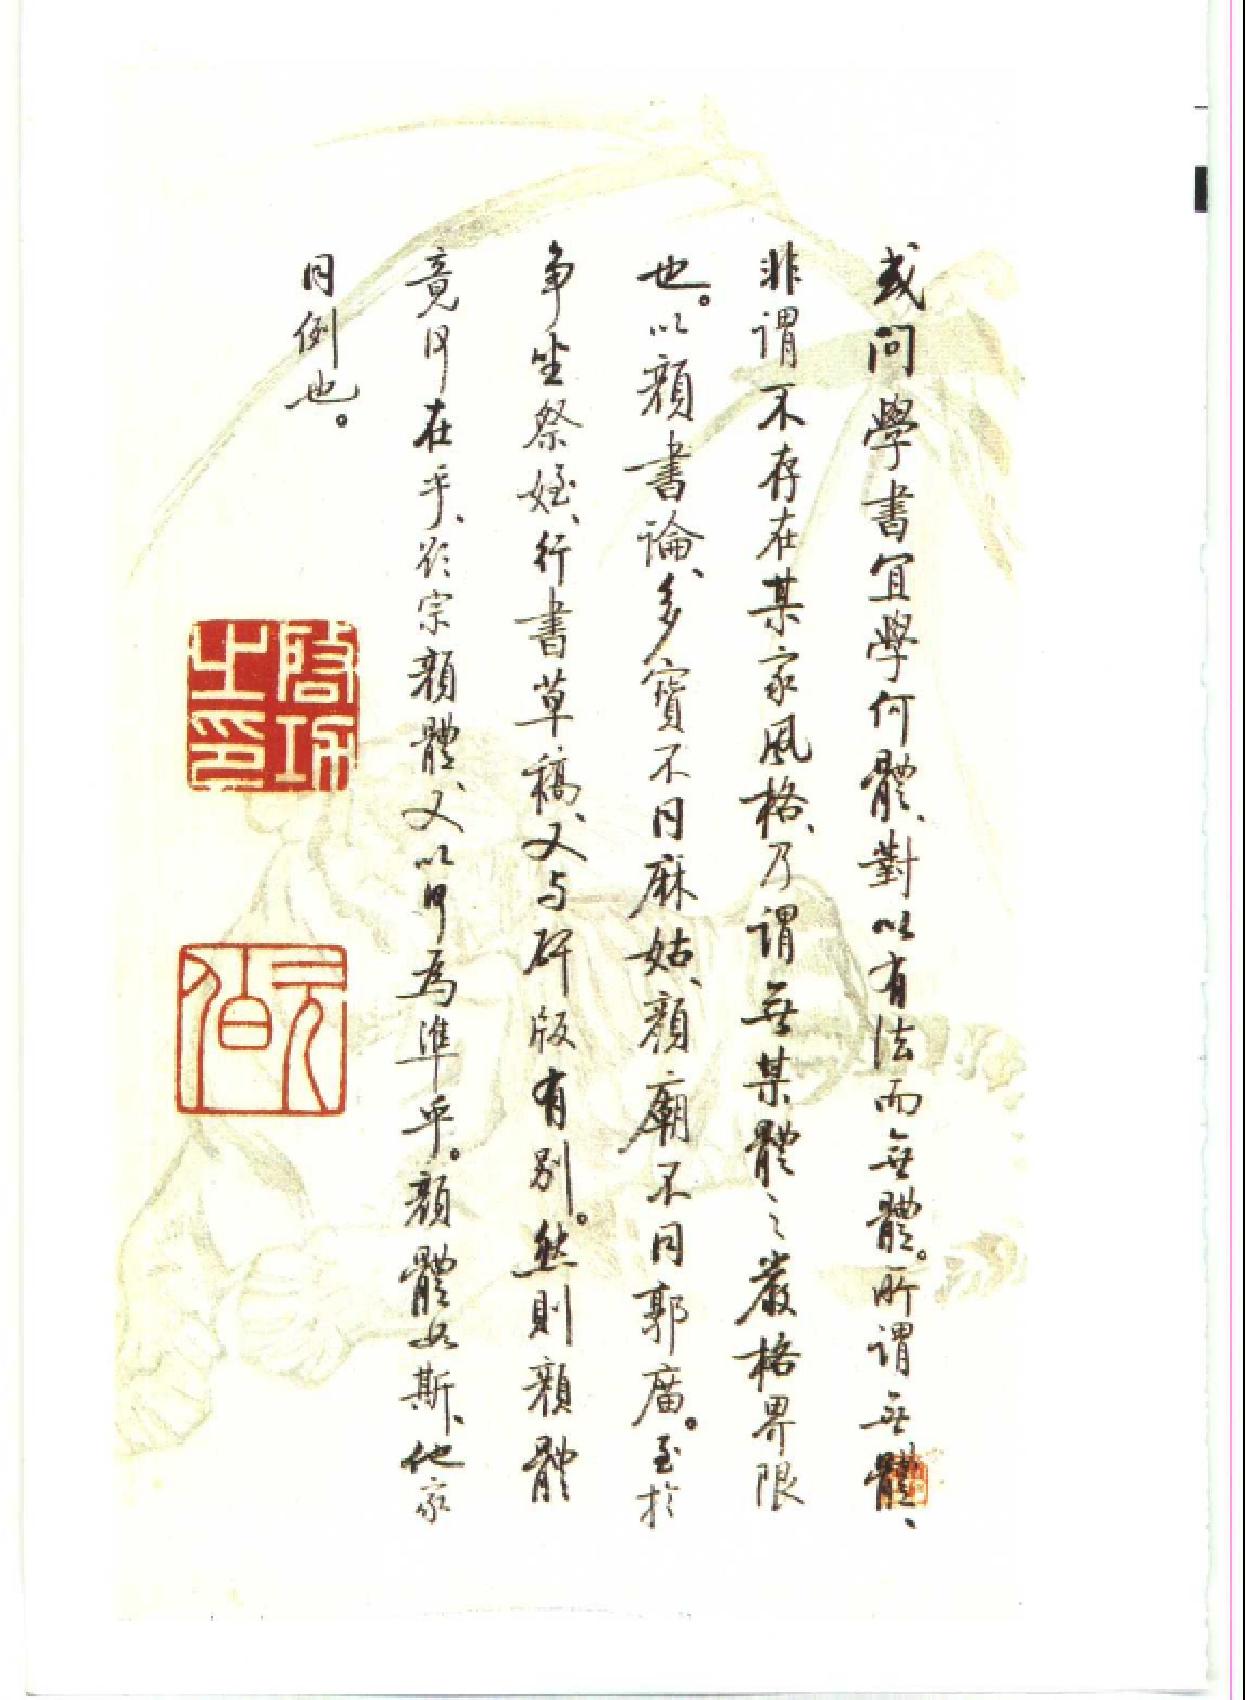 或问學書宜學何體、對以有法而無體。所谓無體、
非谓不存在某家風格、乃谓無某體之嚴格界限
也。以顔書論、多寳不同麻姑、顔廟不同郭廣。至於
争坐祭姪、行書草稿、又与碑版有别。然則顔體
竟何在乎、欲宗顔體、又以何為準乎。顔體如斯、他家
同例也。
啓功之印
元伯